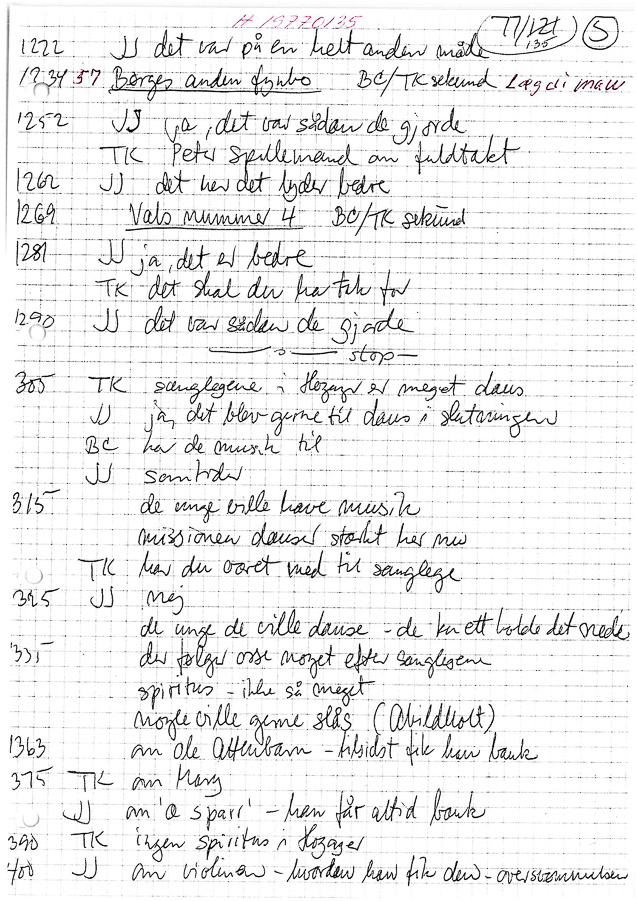 H 19770135
77/121
135
5
1222 JJ det var på en helt anden måde
1234 37 Børges anden fynbo BC/TK sekund Læg di maw
1252 JJ ja, det var sådan de gjorde
TK Peter Spillemand om fuldtakt
1262 JJ det her det lyder bedre
1269 Vals nummer 4 BC/TK sekund
1281 JJ ja, det er bedre
TK det skal du ha tak for
1290 JJ det var sådan de gjorde
stop
305 TK sanglegene i Hozager er meget dans
JJ ja, det blev gerne til dans i slutningen
BC har de musik til
JJ somtider
315 de unge ville have musik
missionen danser stærkt her nu
TK har du været med til sanglege
325 JJ nej
de unge de ville danse - de ku ett holde det nede
335 der følger osse noget efter sanglegene
spiritus - ikke så meget
nogle ville gerne slås (Abildholt)
1363 om Ole Attenbarn - tilsidst fik han bank
375 TK om Mary
JJ om 'æ sparr' - han får altid bank
390 TK ingen spiritus i Hozager
400 JJ om violinen - hvordan han fik den - oversvømmelsen